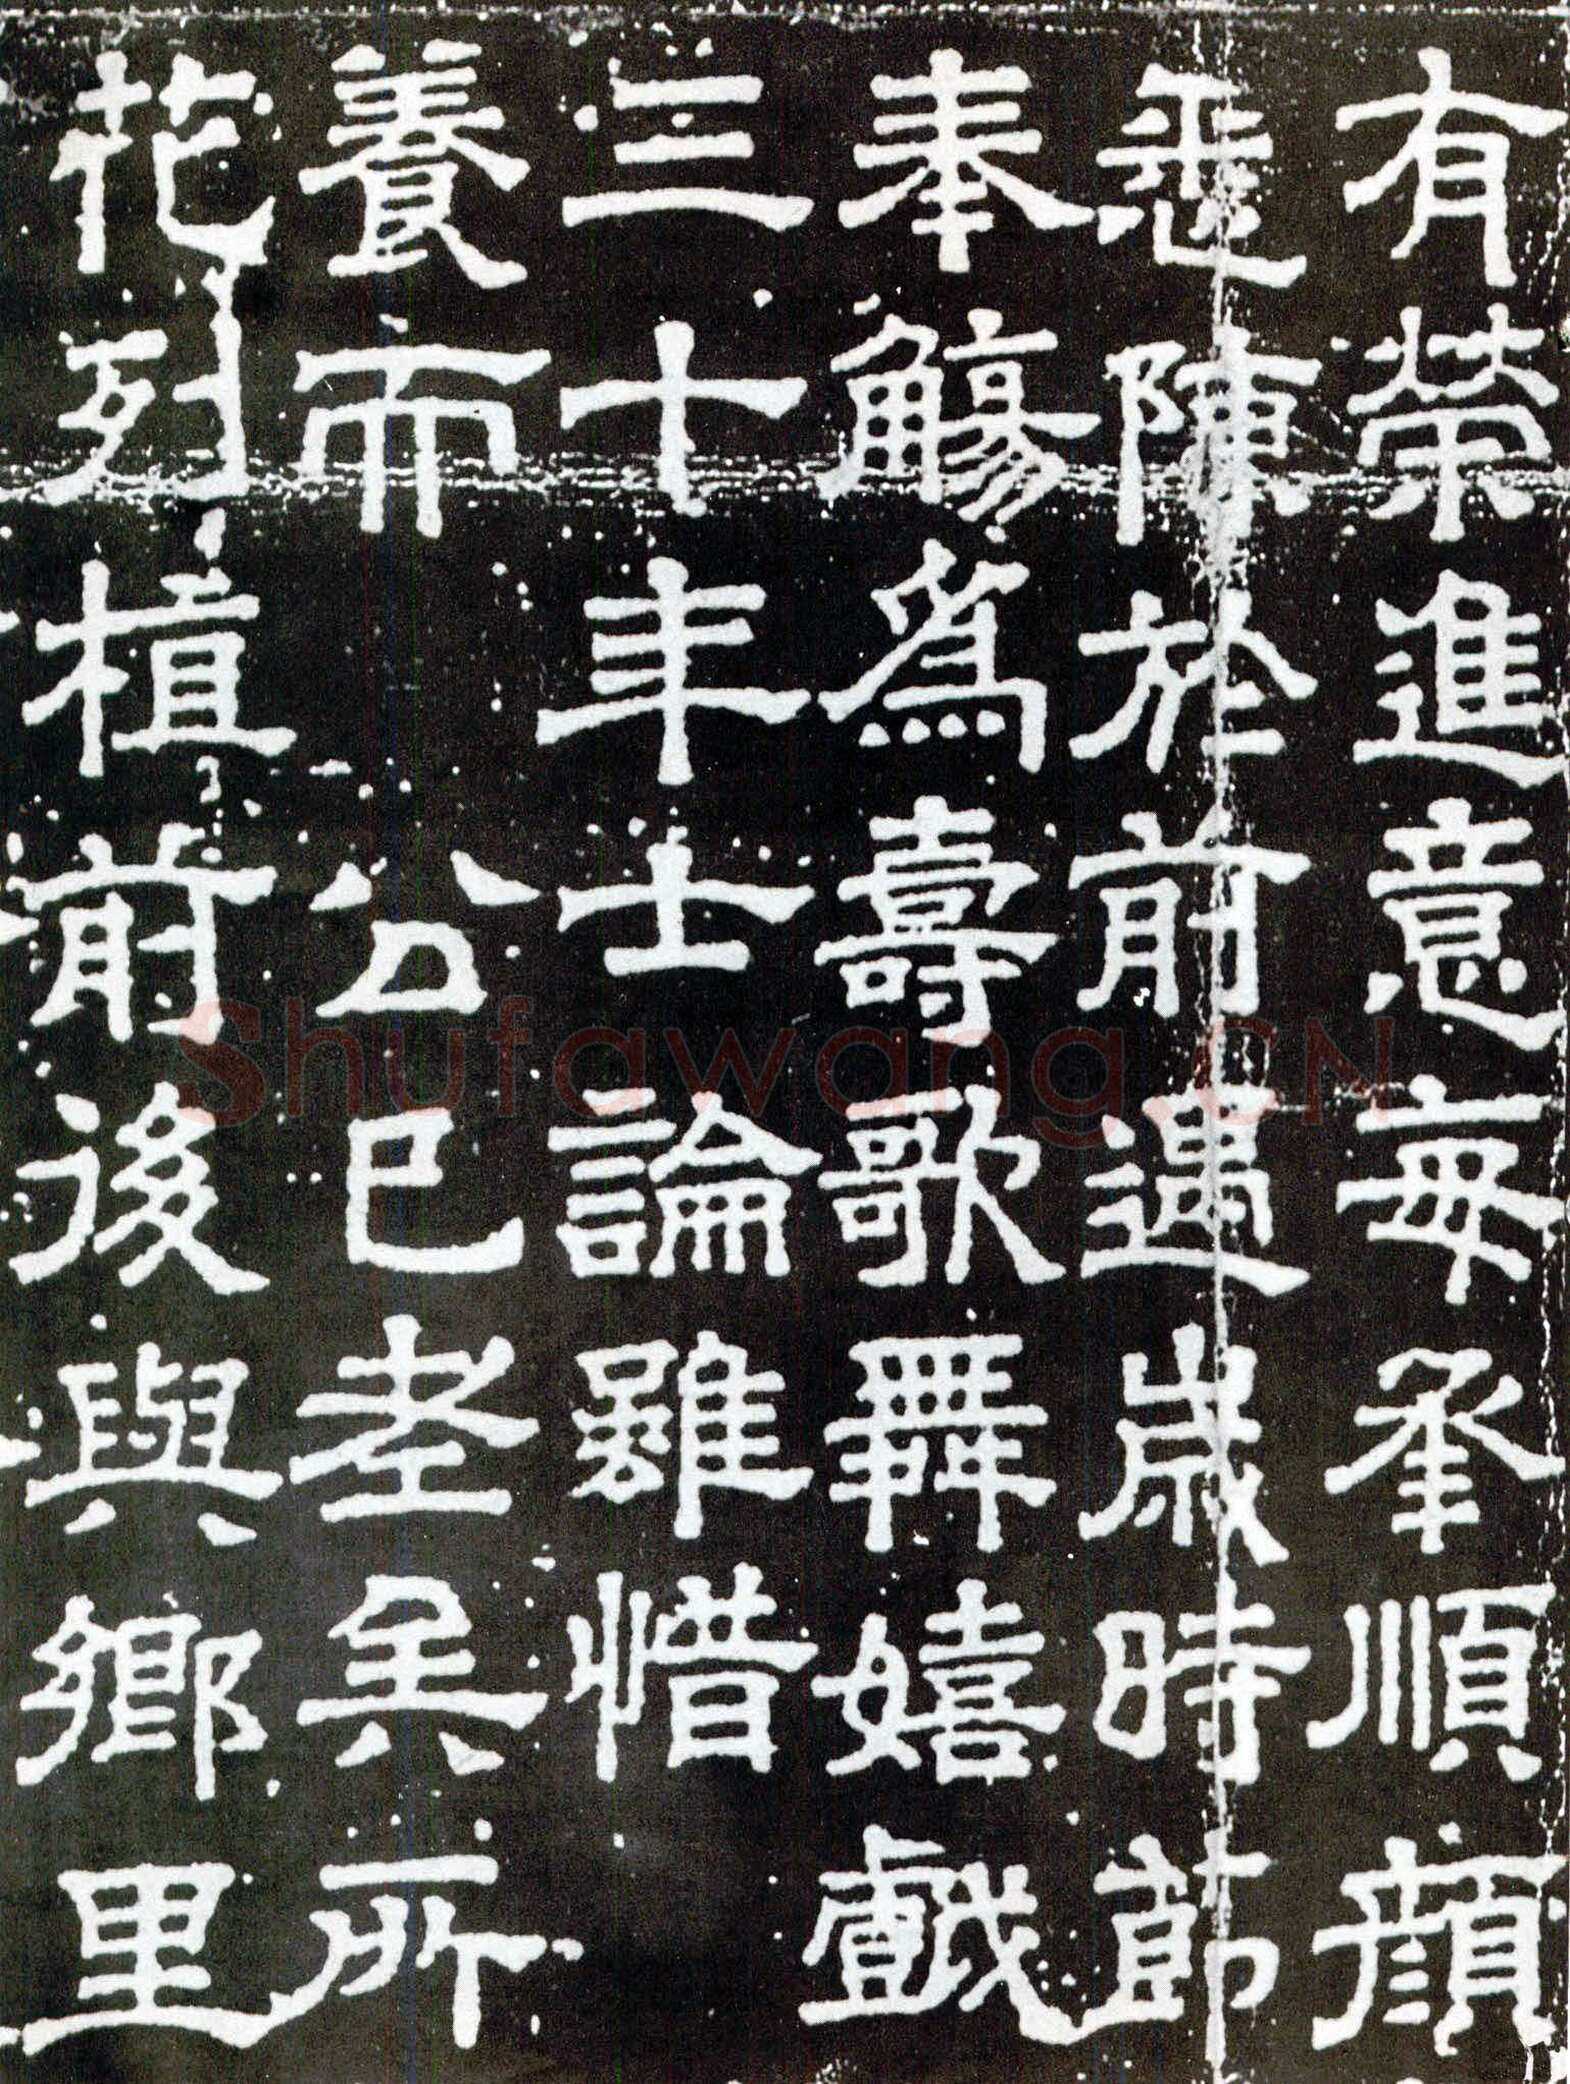 有榮進意每承順顏
悉陳於前遇歲時節
奉觴爲壽歌舞嬉戲
三十年士論雖惜
養而　公已老矣所
花列植前後與鄉里
Shufawang.CN